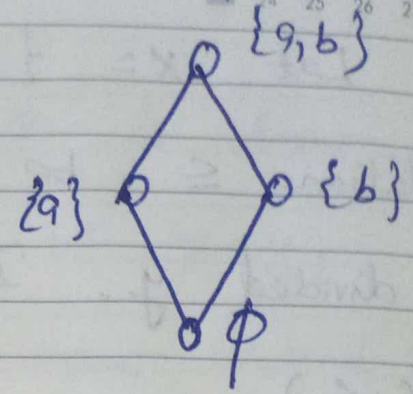 {a,b}
{a}
{b}
ϕ